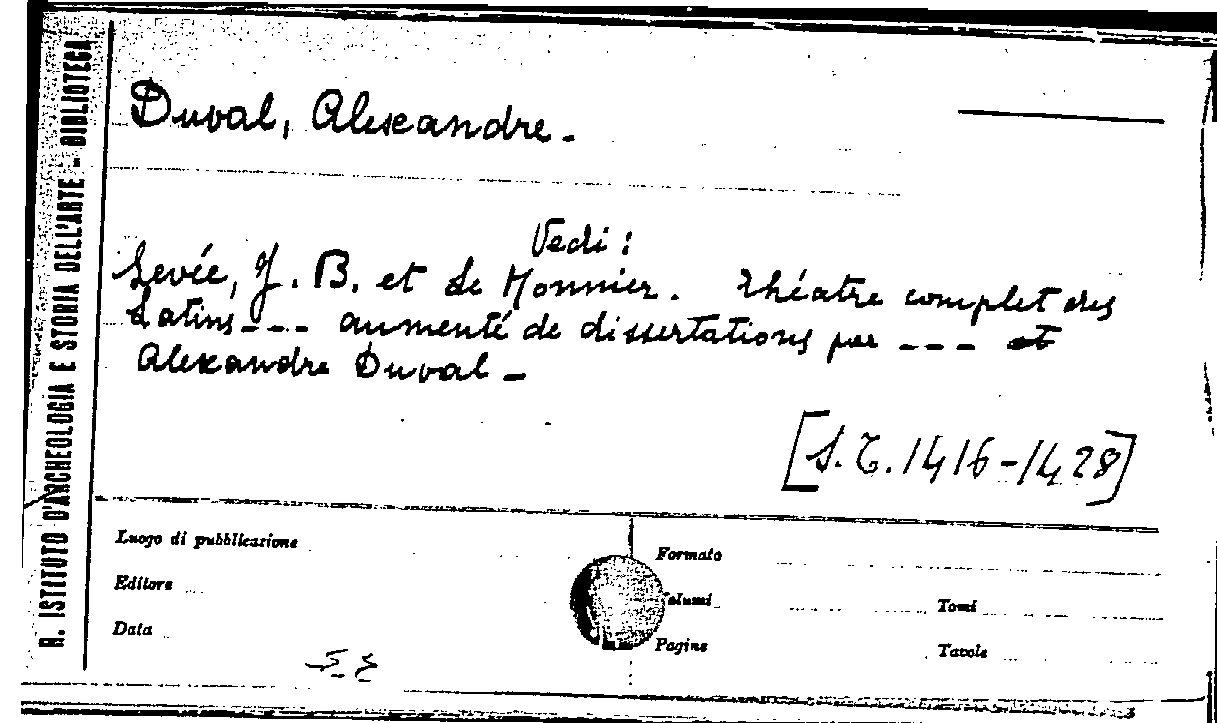 R. ISTITUTO D'ARCHEOLOGIA E STORIA DELL'ARTE - BIBLIOTECA
Duval, Alexandre.-
Vedi:
Levée, J. B. et Le Monnier. Théatre complet des
Latins--- aumenté de dissertations par --- et
Alexandre Duval -
[S.T. 1416-1428]
Luogo di pubblicazione
Editore
Data
Formato
Volumi
Tomi
Pagine
Tavole